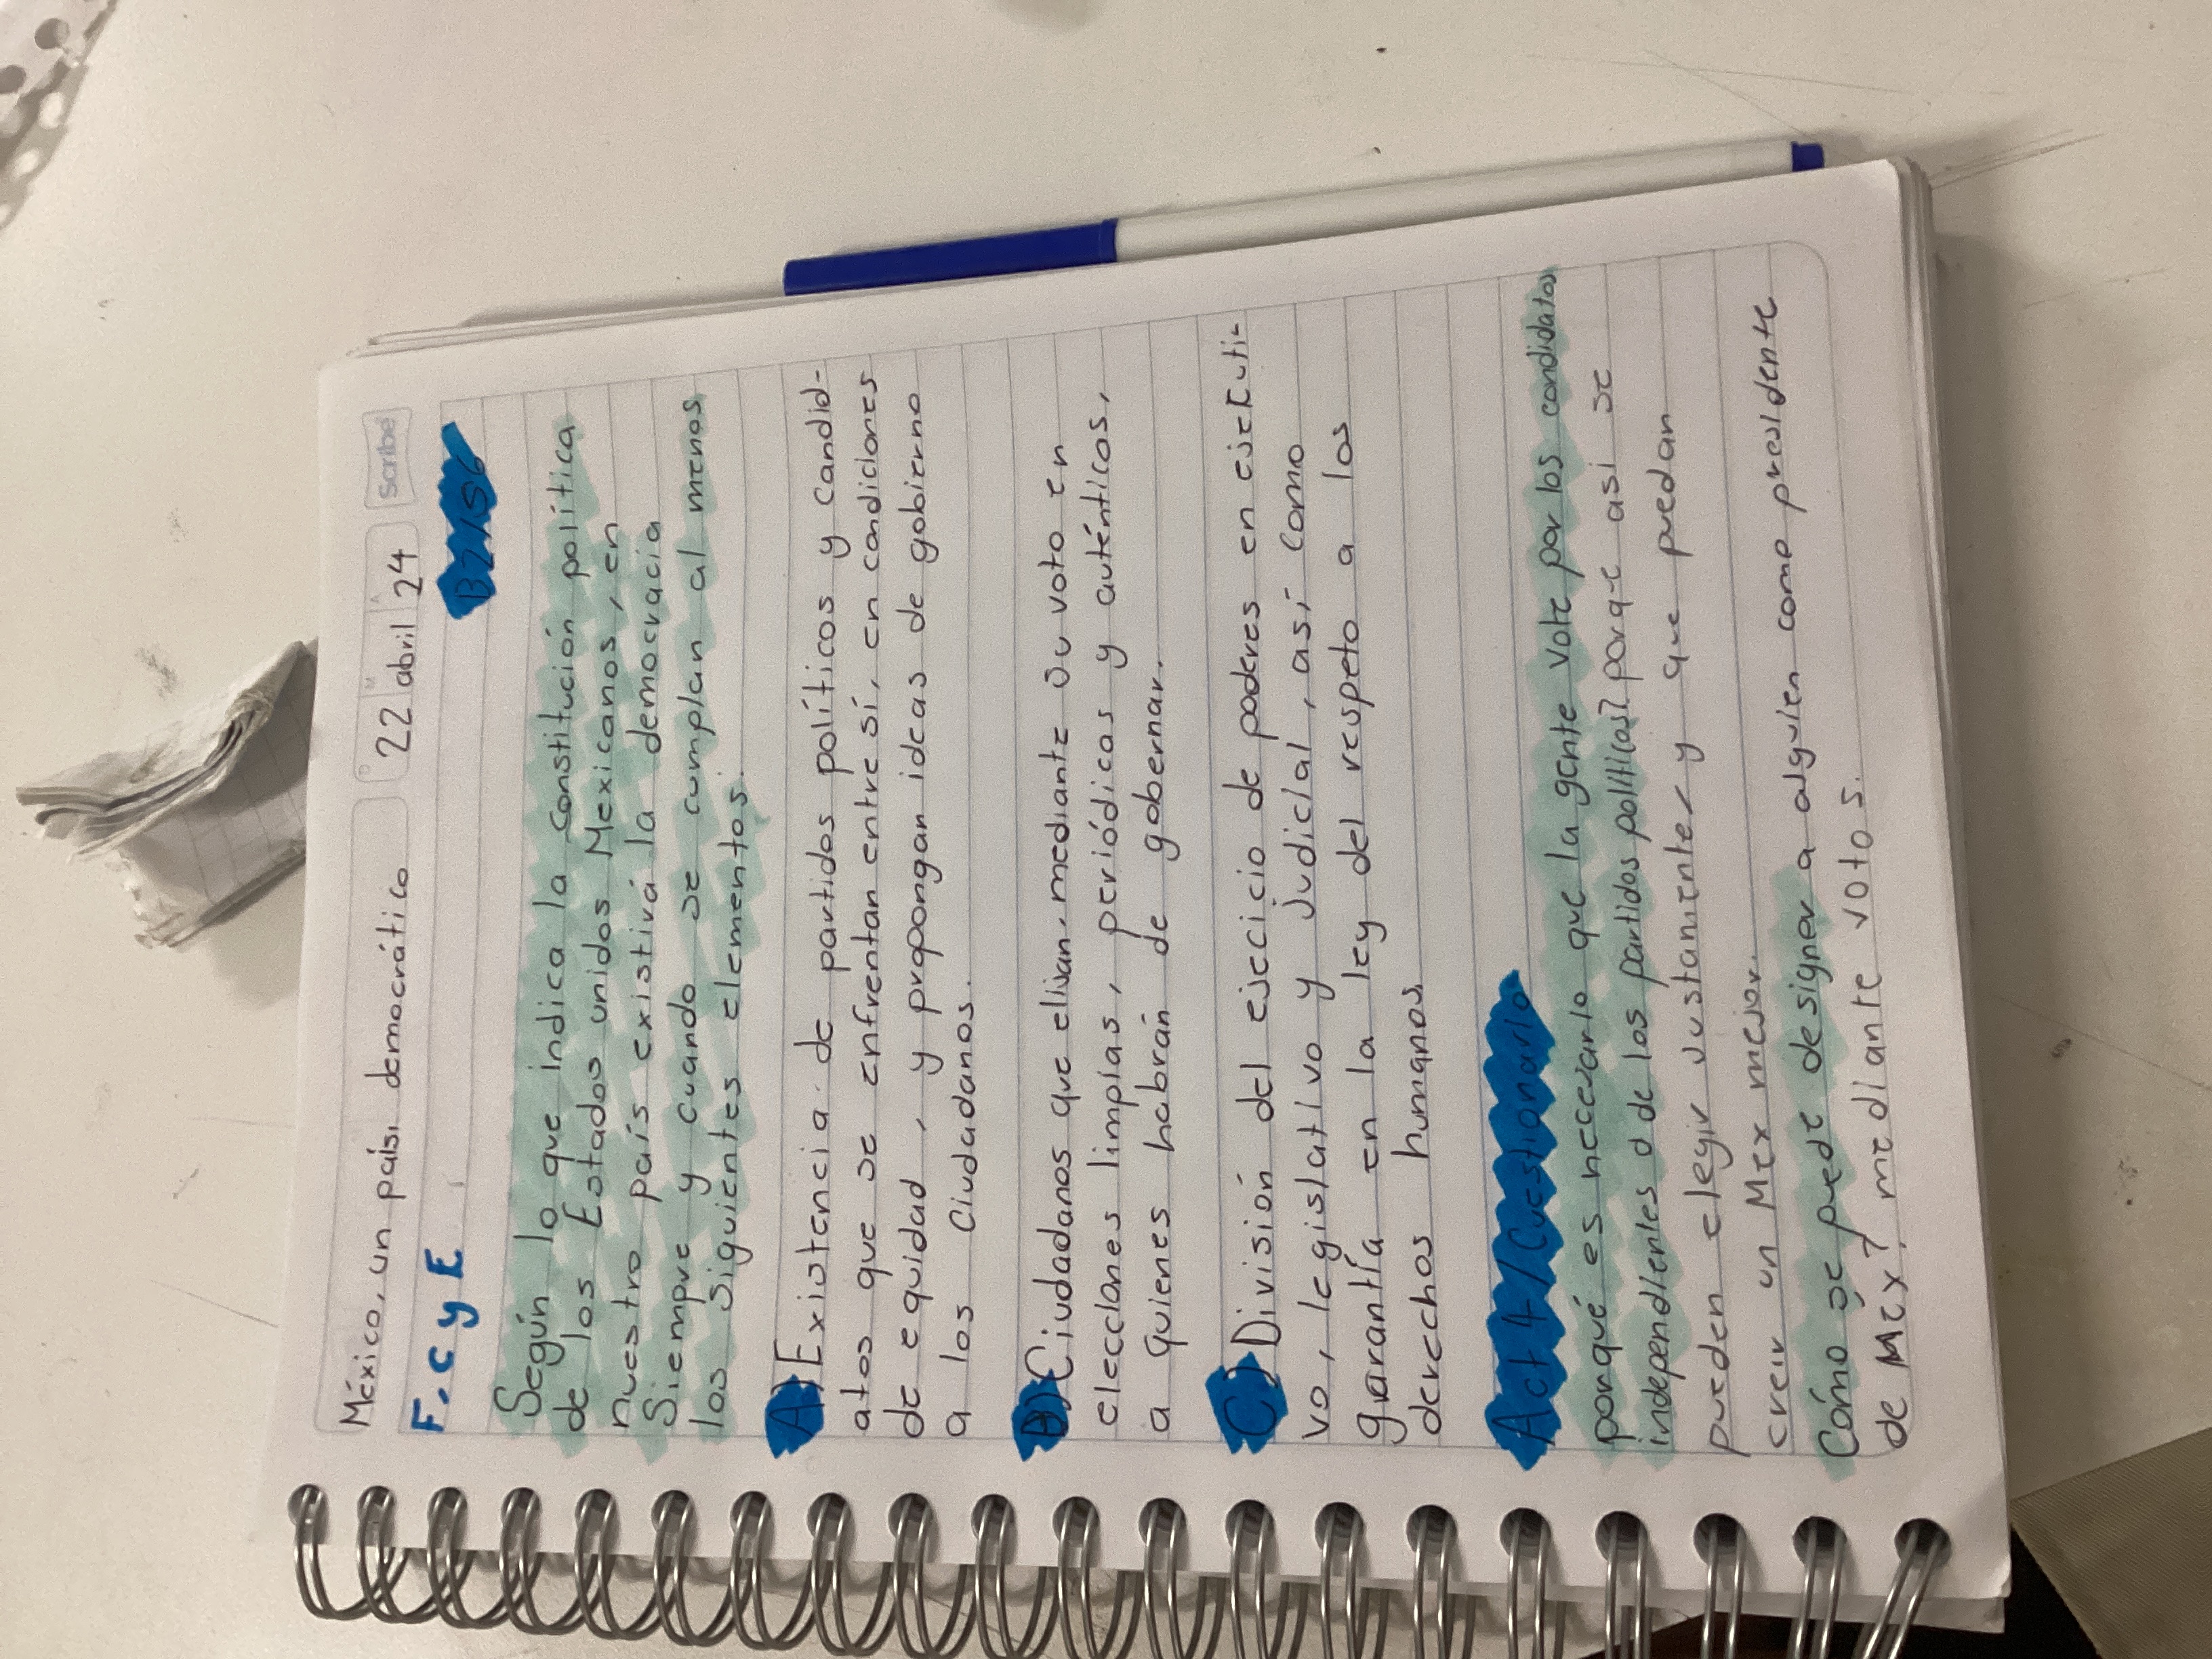 México, un país democrático
D M A
22 abril 24
Scribe
F. C y E
B2/S6
Según lo que indica la constitución política
de los Estados unidos Mexicanos, en
nuestro país existirá la democracia
Siempre y cuando se cumplan al menos
los siguientes elementos:
A) Existencia de partidos políticos y candid-
atos que se enfrentan entre sí, en condiciones
de equidad, y propongan ideas de gobierno
a los Ciudadanos.
B) Ciudadanos que elijan, mediante su voto en
elecciones limpias, periódicas y auténticos,
a quienes habrán de gobernar.
C) División del ejecicio de poderes en ejecuti-
vo, legislativo y judicial, así como
garantía en la ley del respeto a los
derechos humanos
Act 4/Cuestionario
porqué es necesario que la gente vote por los candidatos
independientes o de los partidos políticos? porque asi se
pueden elegir justamente, y que puedan
creir un Mex mejor.
Cómo se puede designar a alguien como presidente
de Méx? mediante votos.